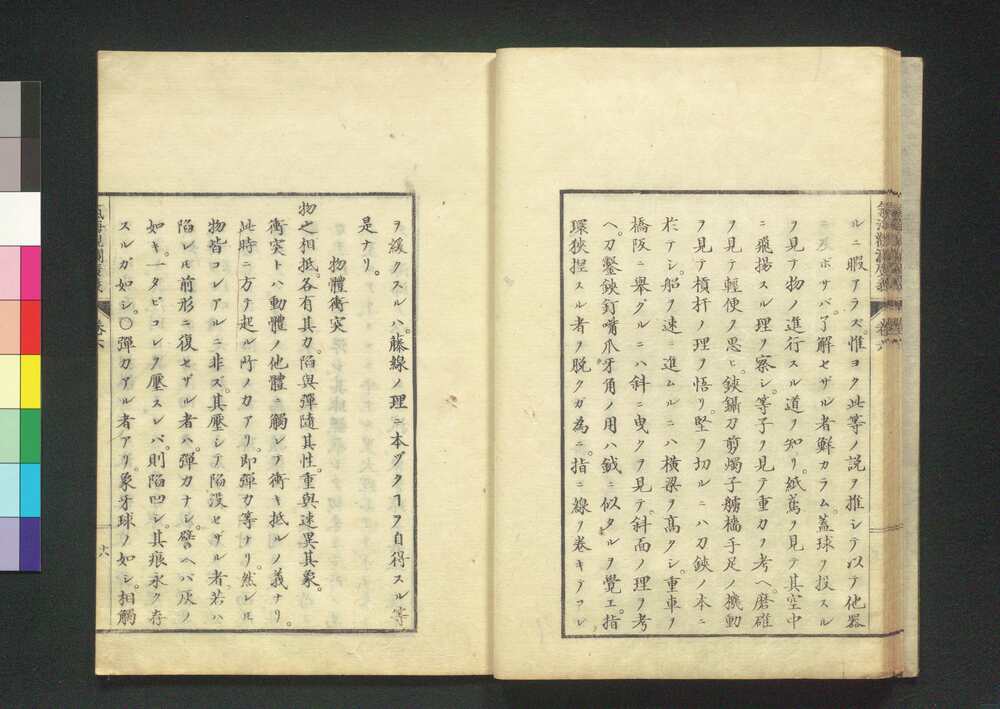 ルニ暇アラズ。惟ヨク此等ノ説ヲ推シテ以テ他器
ニ及ボサバ。了解セザル者鮮カラム。蓋球ヲ投スル
ヲ見テ物ノ進行スル道ヲ知リ。紙鳶ヲ見テ其空中
ニ飛揚スル理ヲ察シ。等子ヲ見テ重力ヲ考ヘ。磨碓
ヲ見テ軽便ヲ思ヒ。鋏鑷刀剪燭子艣檣手足ノ機動
ヲ見テ槓杆ノ理ヲ悟リ。堅ヲ切ルニハ刀鋏ノ本ニ
於テシ。船ヲ速ニ進ムルニハ横梁ヲ高クシ。重車ヲ
橋阪ニ舉グルニハ斜ニ曳クヲ見テ。斜面ノ理ヲ考
ヘ。刀鑿鋏釘嘴爪牙角ノ用ハ鉞ニ似タルヲ覺エ。指
環狹捏スル者ヲ脱クガ為ニ。指ニ線ヲ卷キテコレ
氣海觀瀾廣義
卷六
ヲ緩クスルハ。藤線ノ理ニ本ヅクヿヲ自得スル等
是ナリ。
物體衝突
物之相抵。各有其力。陷與彈隨其性。重與速異其象。
衝突トハ動體ノ他體ニ觸レヲ衝キ抵ルノ義ナリ。
此時ニ方テ起ル所ノカアリ。即彈力等ナリ。然レ𪜈
物皆コレアルニ非ズ。其壓シテ陷没セザル者若ハ
陷レル前形ニ復セザル者ハ。彈力ナシ。譬ヘバ灰ノ
如キ。一タビコレヲ壓スレバ。則陷凹シ。其痕永ク存
スルガ如シ。〇彈力アル者アリ。象牙球ノ如シ。相觸
氣海觀瀾廣義
卷六
六